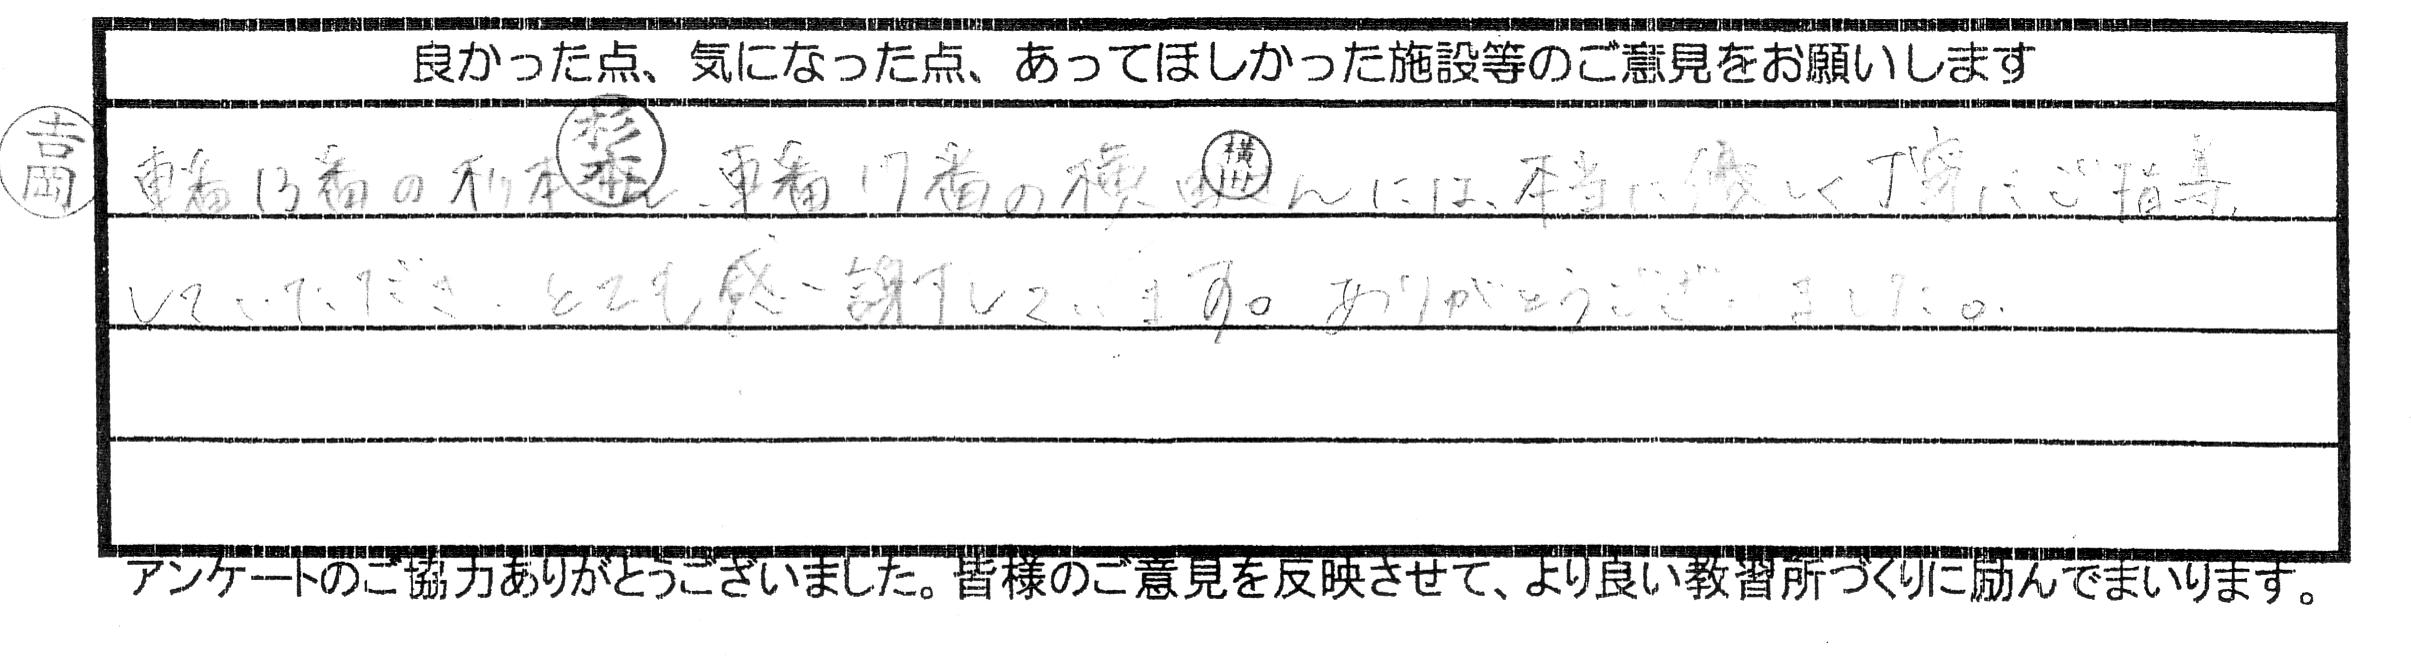 良かった点、気になった点、あってほしかった施設等のご意見をお願いします
吉岡
杉本
横山
車番13番の杉本さん、車番17番の横田さんには、本当に優しく丁寧にご指導
していただき、とても感謝しています。ありがとうございました。
アンケートのご協力ありがとうございました。皆様のご意見を反映させて、より良い教習所づくりに励んでまいります。